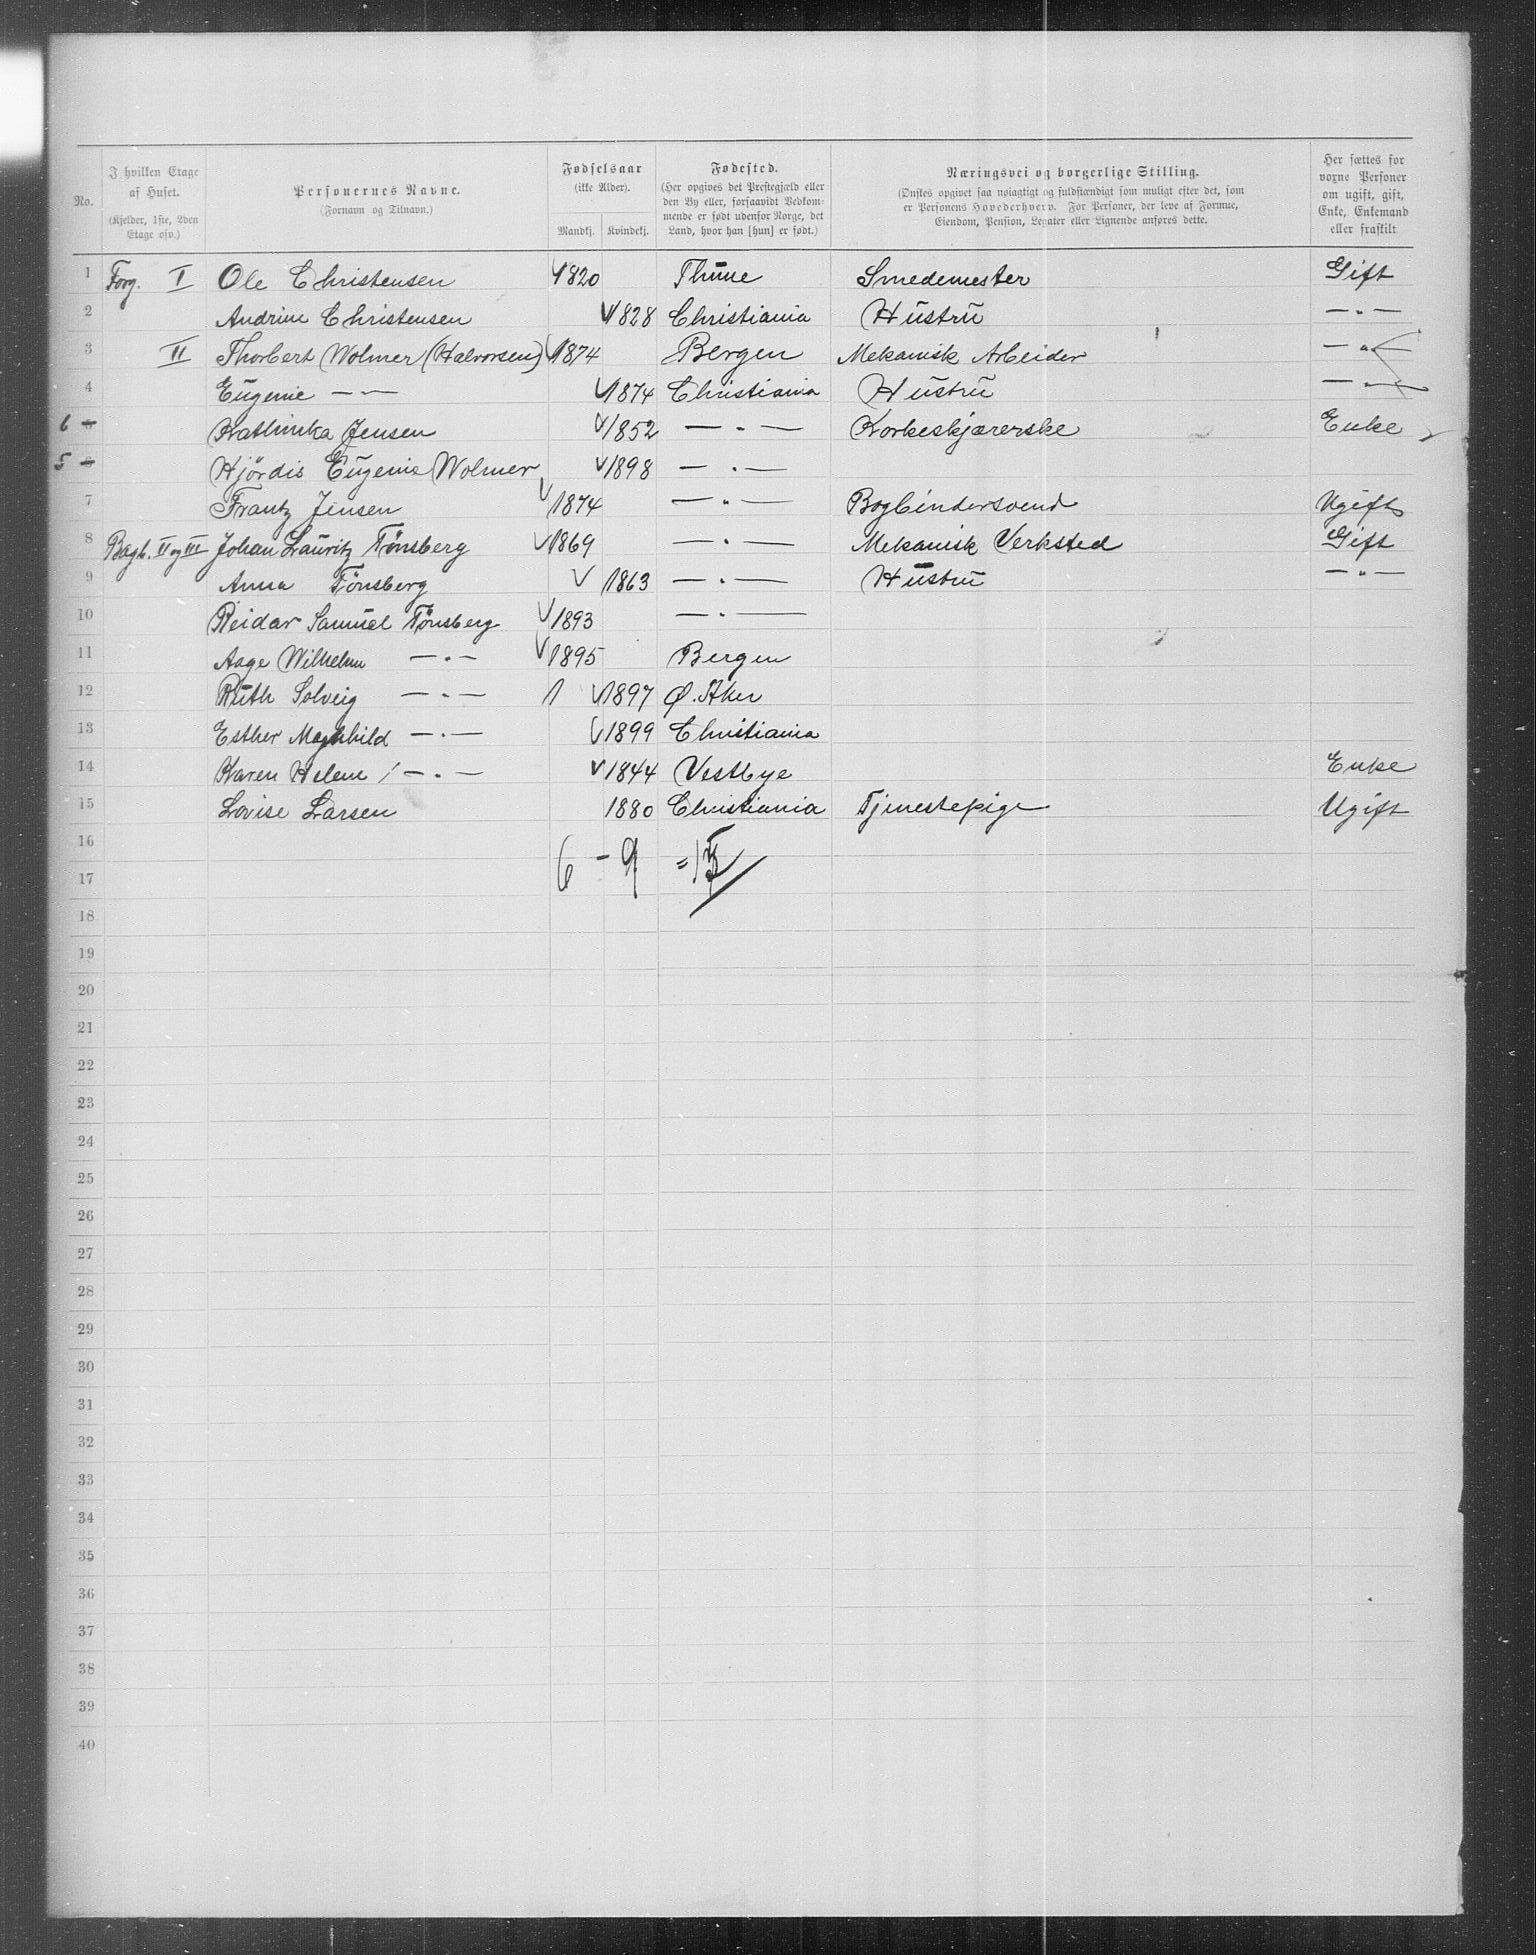 No.
I hvilken Etage af Huset.
(Kjelder, 1ste, 2den Etage osv.)
Personernes Navne.
(Fornavn og Tilnavn.)
Fødselsaar
(ikke Alder).
Mandkj. Kvindekj.
Fødested.
(Her opgives det Præstegjæld eller den By eller, forsaavidt Vedkommende er født udenfor Norge, det Land, hvor han [hun] er født.)
Næringsvei og borgerlige Stilling.
(Ønskes opgivet saa nøiagtigt og fuldstændigt som muligt efter det, som er Personens Hovederhverv. For Personer, der leve af Formue, Eiendom, Pension, Legater eller Lignende anføres dette.
Her sættes for voxne Personer om ugift, gift, Enke, Enkemand eller fraskilt
1 Forg. I Ole Christensen 1820 Thune Smedemester Gift
2 Andrine Christensen 1828 Christiania Hustru —„—
3 II Thorbert Wolmer (Halvorsen) 1874 Bergen Mekanisk Arbeider —„—
4 Eugenie —„— 1874 Christiania Hustru —„—
6 Kathinka Jensen 1852 —„— Korkeskjærerske Enke
5 Hjördis Eugenie Wolmer 1898 —„—
7 Frantz Jensen 1874 —„— Bogbindersvend Ugift
8 Bagb. II og III Johan Lauritz Tönsberg 1869 —„— Mekanisk Verksted Gift
9 Anna Tönsberg 1863 —„— Hustru —„—
10 Reidar Samuel Tönsberg 1893 —„—
11 Aage Wilhelm —„— 1895 Bergen
12 Ruth Solveig —„— 1 1897 Ø. Aker
13 Esther Maghild —„— 1899 Christiania
14 Karen Helene —„— 1844 Vestbye Enke
15 Lovise Larsen 1880 Christiania Tjenestepige Ugift
16
6 - 9 = 15
17
18
19
20
21
22
23
24
25
26
27
28
29
30
31
32
33
34
35
36
37
38
39
40